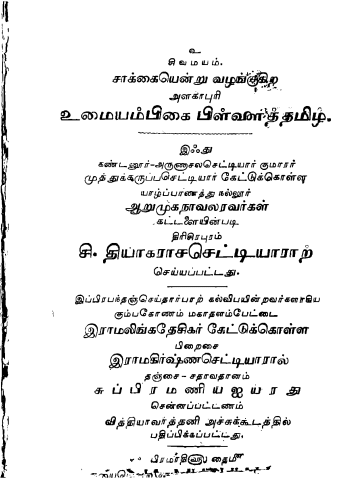 உ
சிவமயம்.
சாக்கையென்று வழங்குகிற
அளகாபுரி
உமையம்பிகை பிள்ளைத்தமிழ்.
இஃது
கண்டனூர்-அருணாசலசெட்டியார் குமாரர்
முத்துக்கருப்பசெட்டியார் கேட்டுக்கொள்ள
யாழ்ப்பாணத்து நல்லூர்
ஆறுமுகநாவலரவர்கள்
கட்டளையின்படி
திரிசிரபுரம்
சி. தியாகராசசெட்டியாராற்
செய்யப்பட்டது.
இப்பிரபந்தஞ்செய்தார்பாற் கல்விபயின்றவர்களாகிய
கும்பகோணம் மகாதளம்பேட்டை
இராமலிங்கதேசிகர் கேட்டுக்கொள்ள
பிறைசை
இராமகிருஷ்ணசெட்டியாரால்
தஞ்சை - சதாவதானம்
சுப்பிரமணியஐயரது
சென்னப்பட்டணம்
வித்தியாவர்த்தனி அச்சுக்கூடத்தில்
பதிப்பிக்கப்பட்டது.
பிரமாதிஹு தைமீ